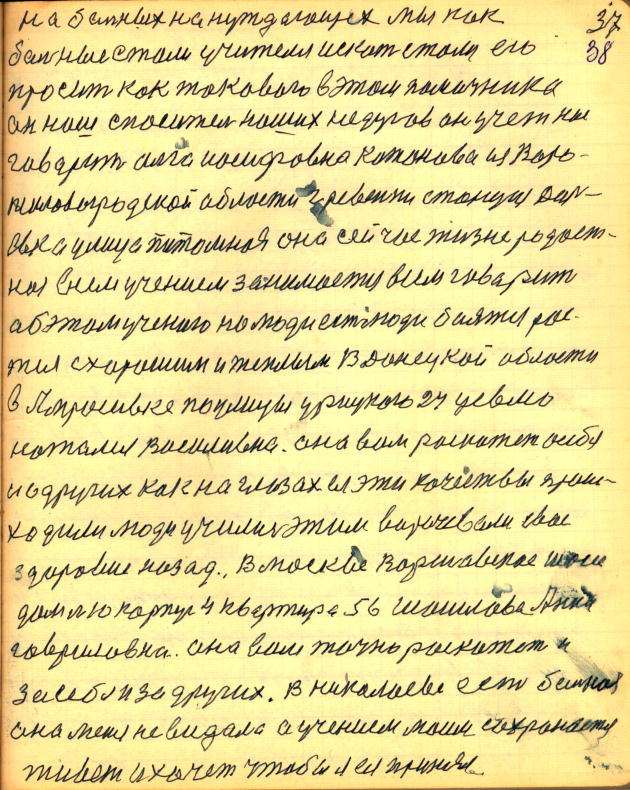 на больных на нуждающихся мы как 37
больные стали учителя искат стали его 38
просит как такового в этом помочника
он наш спасител наших недугов он учет нас
говарить алга иосифовна катонова из Воро-
шиловоградской области Черевенки станция Дар-
евка улица питомная она сейчас жизнерадост-
ная внем учением занимается всем говарит
аб этом ученого на люди есть люди баятся рас-
тся с хорошим и теплым В Донецкой области
в Мапросивке по улицы урицкого 24 цевмо
наталия василивна. она вам раскажет о себя
и о других как на глазах ея эти качествы прои-
ходили люди училис этим варочивали свае
здоровие назад., В москве Варшавское шосе
дом 7 ю карпус 4 квартира 56 Шашлова Анна
говриловна. она вам точно раскажет и
за себя и за других. В николаеве есть больная
она меня не видала а учением моим сохраняется
живет и хочет чтобы я ея принял